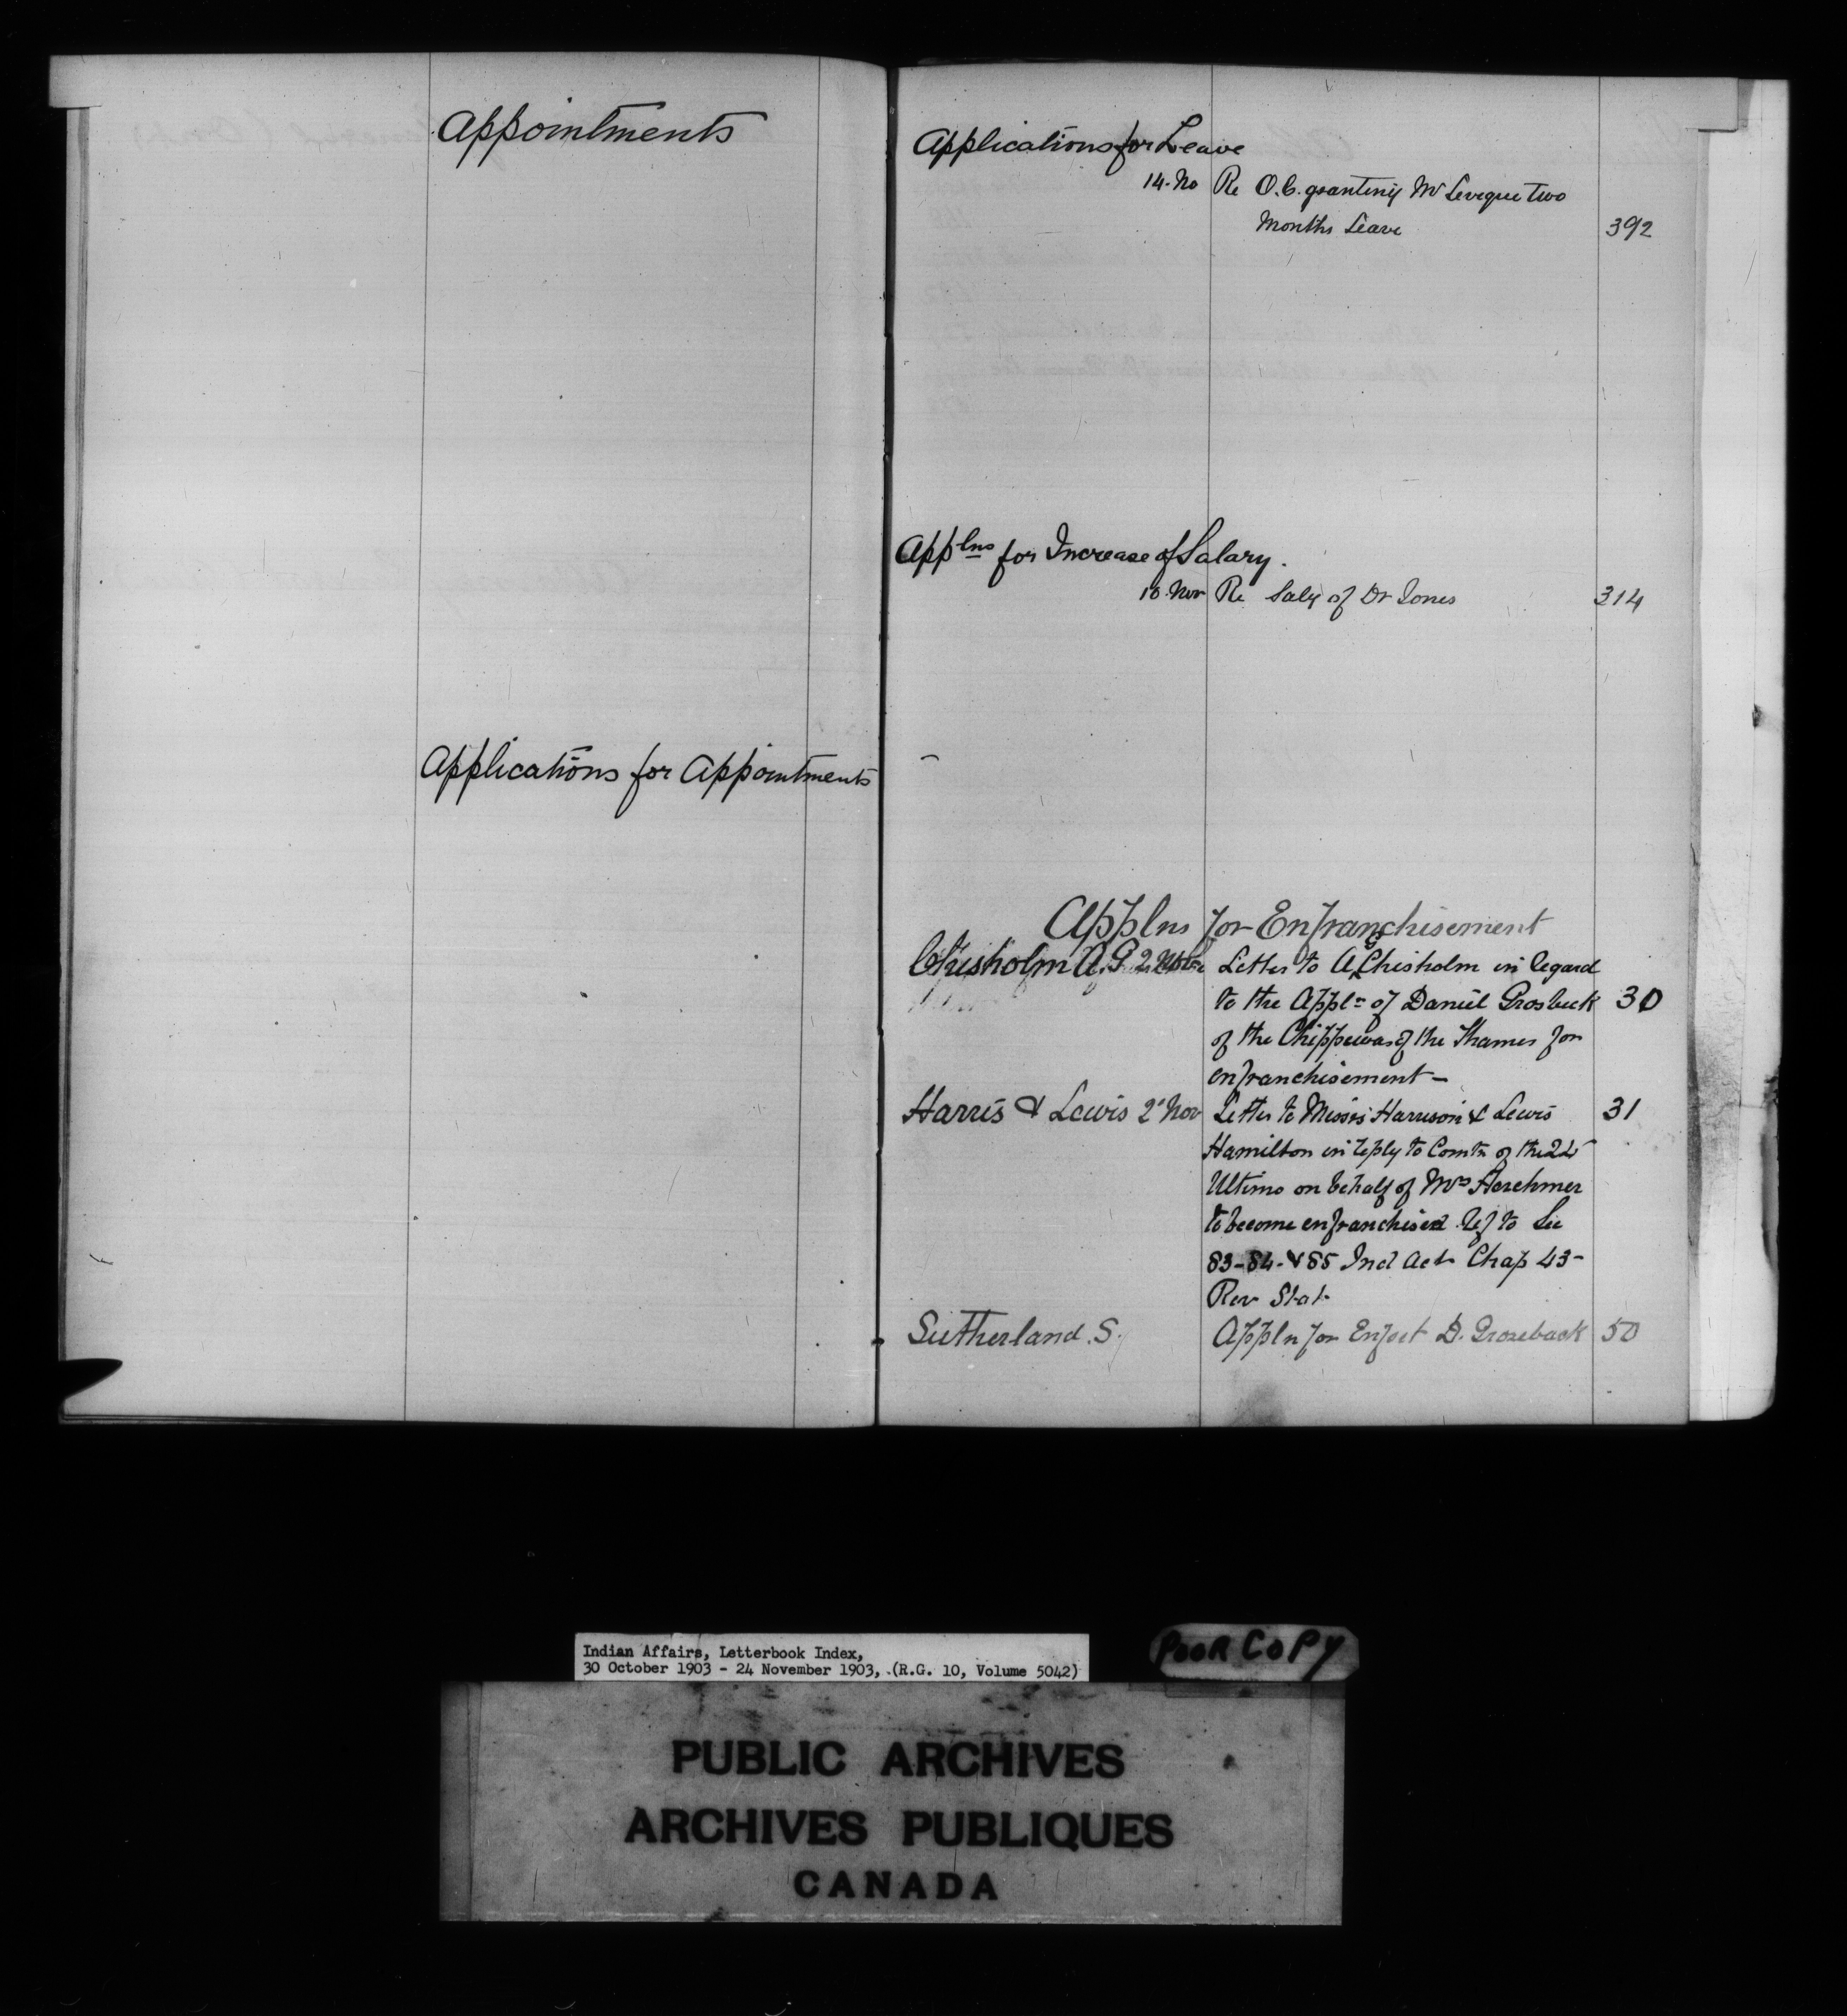 Appointments
Applications for Appointments
Applications for Leave
14. No Re O.C. granting Mr Leveque two
Months Leave 392
Applns for Increase of Salary.
10. Nov Re Saly of Dr Jones 314
Applns for Enfranchisement
Chisholm A.G 2 Letter to A G Chisholm in regard
to the Appln of Daniel Grosbeck 30
of the Chippewas of the Thames for
enfranchisement -
Harris & Lewis 2' Nov Letter to Messrs Harrison & Lewis 31
Hamilton in reply to Comtn of the
Ultimo on behalf of Mrs Herchmer
to become enfranchised Ref to Sec
83-84-&85 Ind Act Chap 43-
Rev Stat
Sutherland. S. Appln for Enfset D. Grozeback 50
Indian Affairs, Letterbook Index,
30 October 1903 - 24 November 1903, (R.G. 10, Volume 5042)
POOR COPY
PUBLIC ARCHIVES
ARCHIVES PUBLIQUES
CANADA